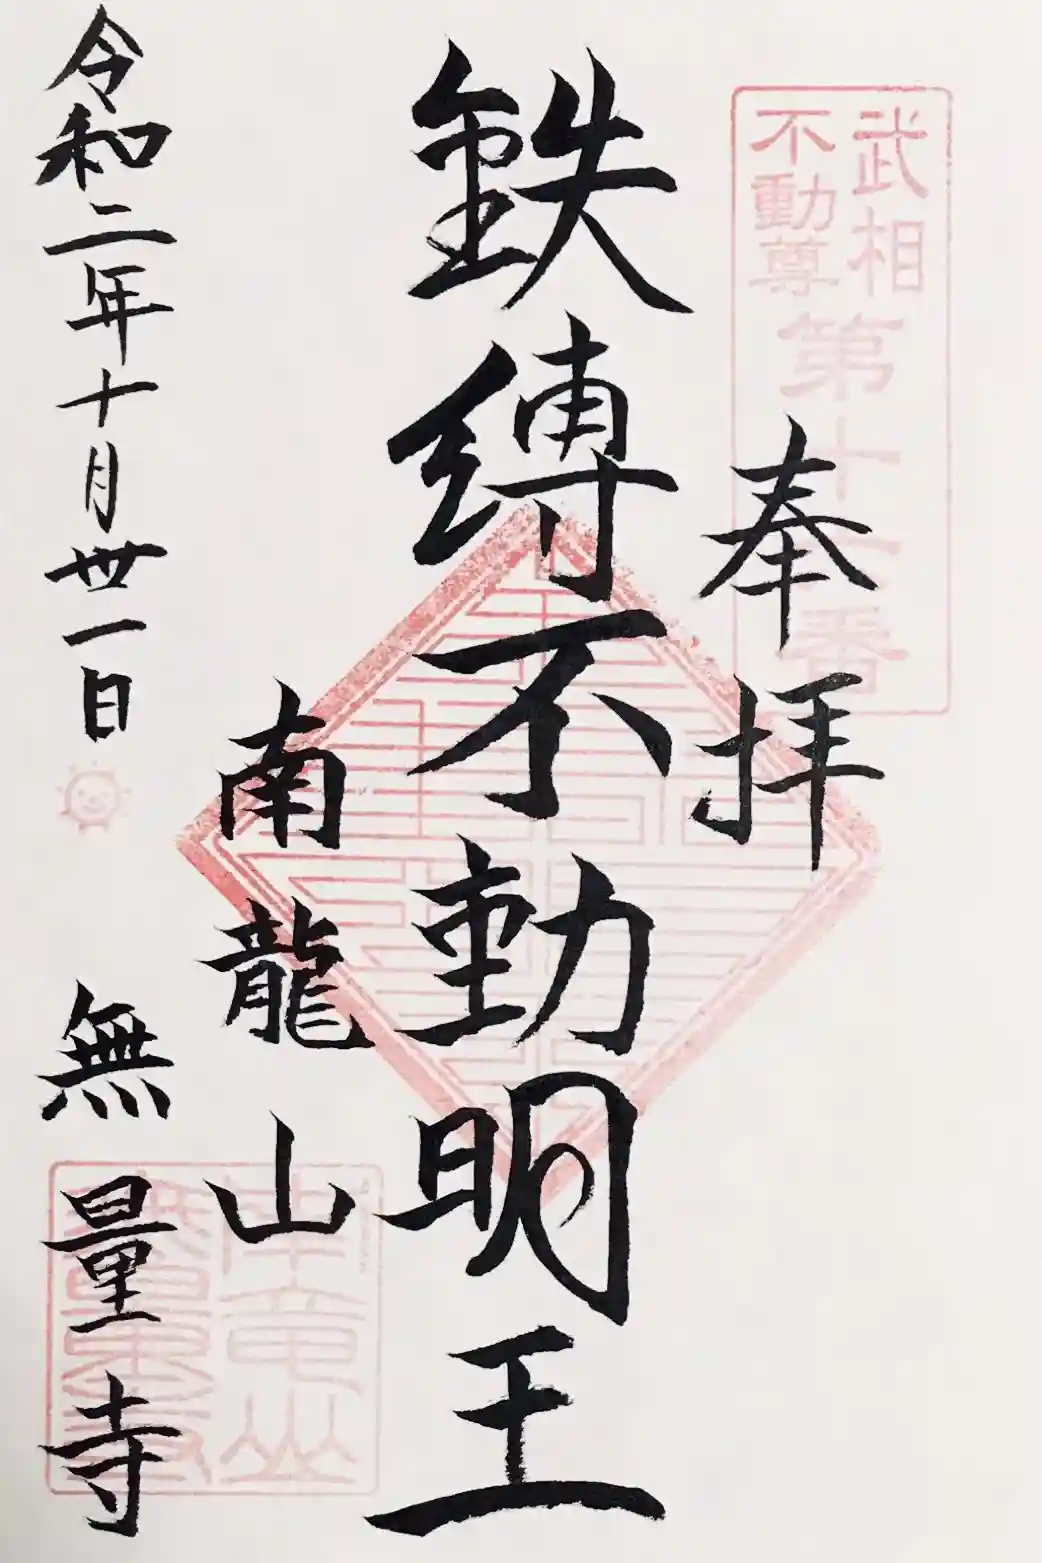 武相
不動尊
第十一番
奉拝
鉄縛不動明王
南龍山
無量寺
令和二年十月丗一日